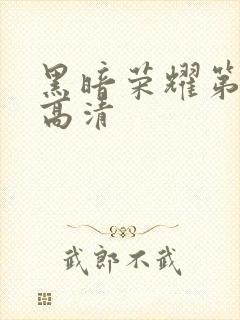 黑暗荣耀第
高清
武郎不武